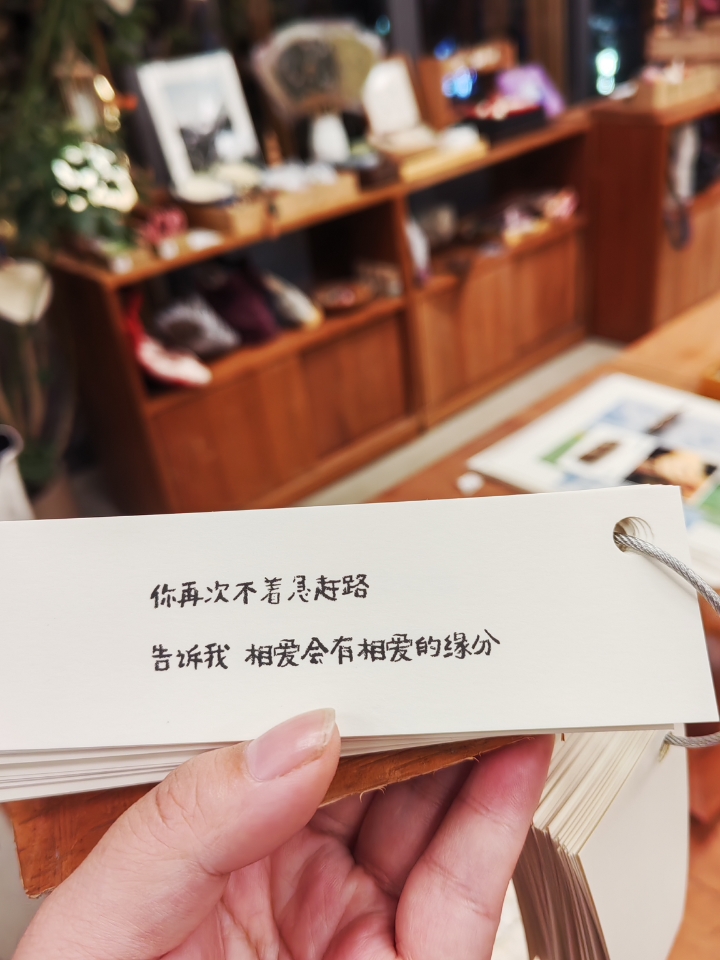 你再次不着急赶路
告诉我 相爱会有相爱的缘分